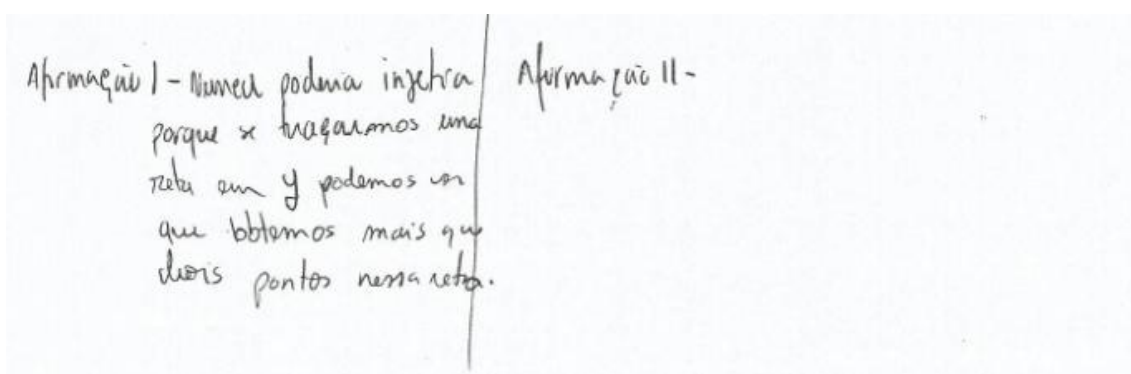 Afirmação I - Nunca poderia injetiva
porque se traçarmos uma
reta em y podemos ver
que obtemos mais que
dois pontos nessa reta.
Afirmação II -